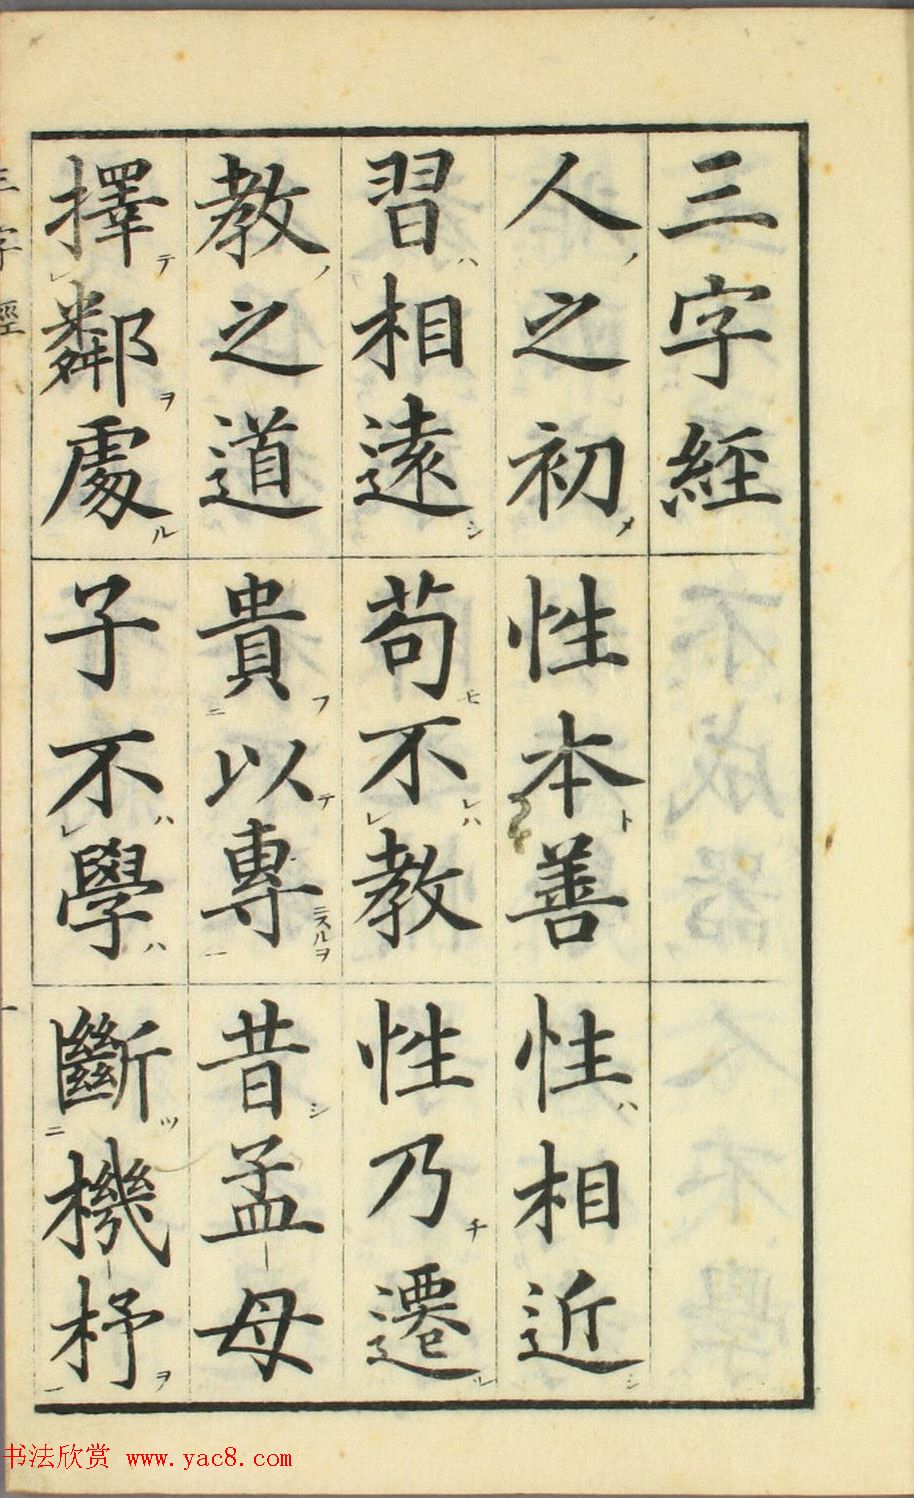 三字経
人之初 性本善 性相近
習相遠 苟不教 性乃遷
教之道 貴以專 昔孟母
擇鄰處 子不學 斷機杼
三字經
一
书法欣赏 www.yac8.com